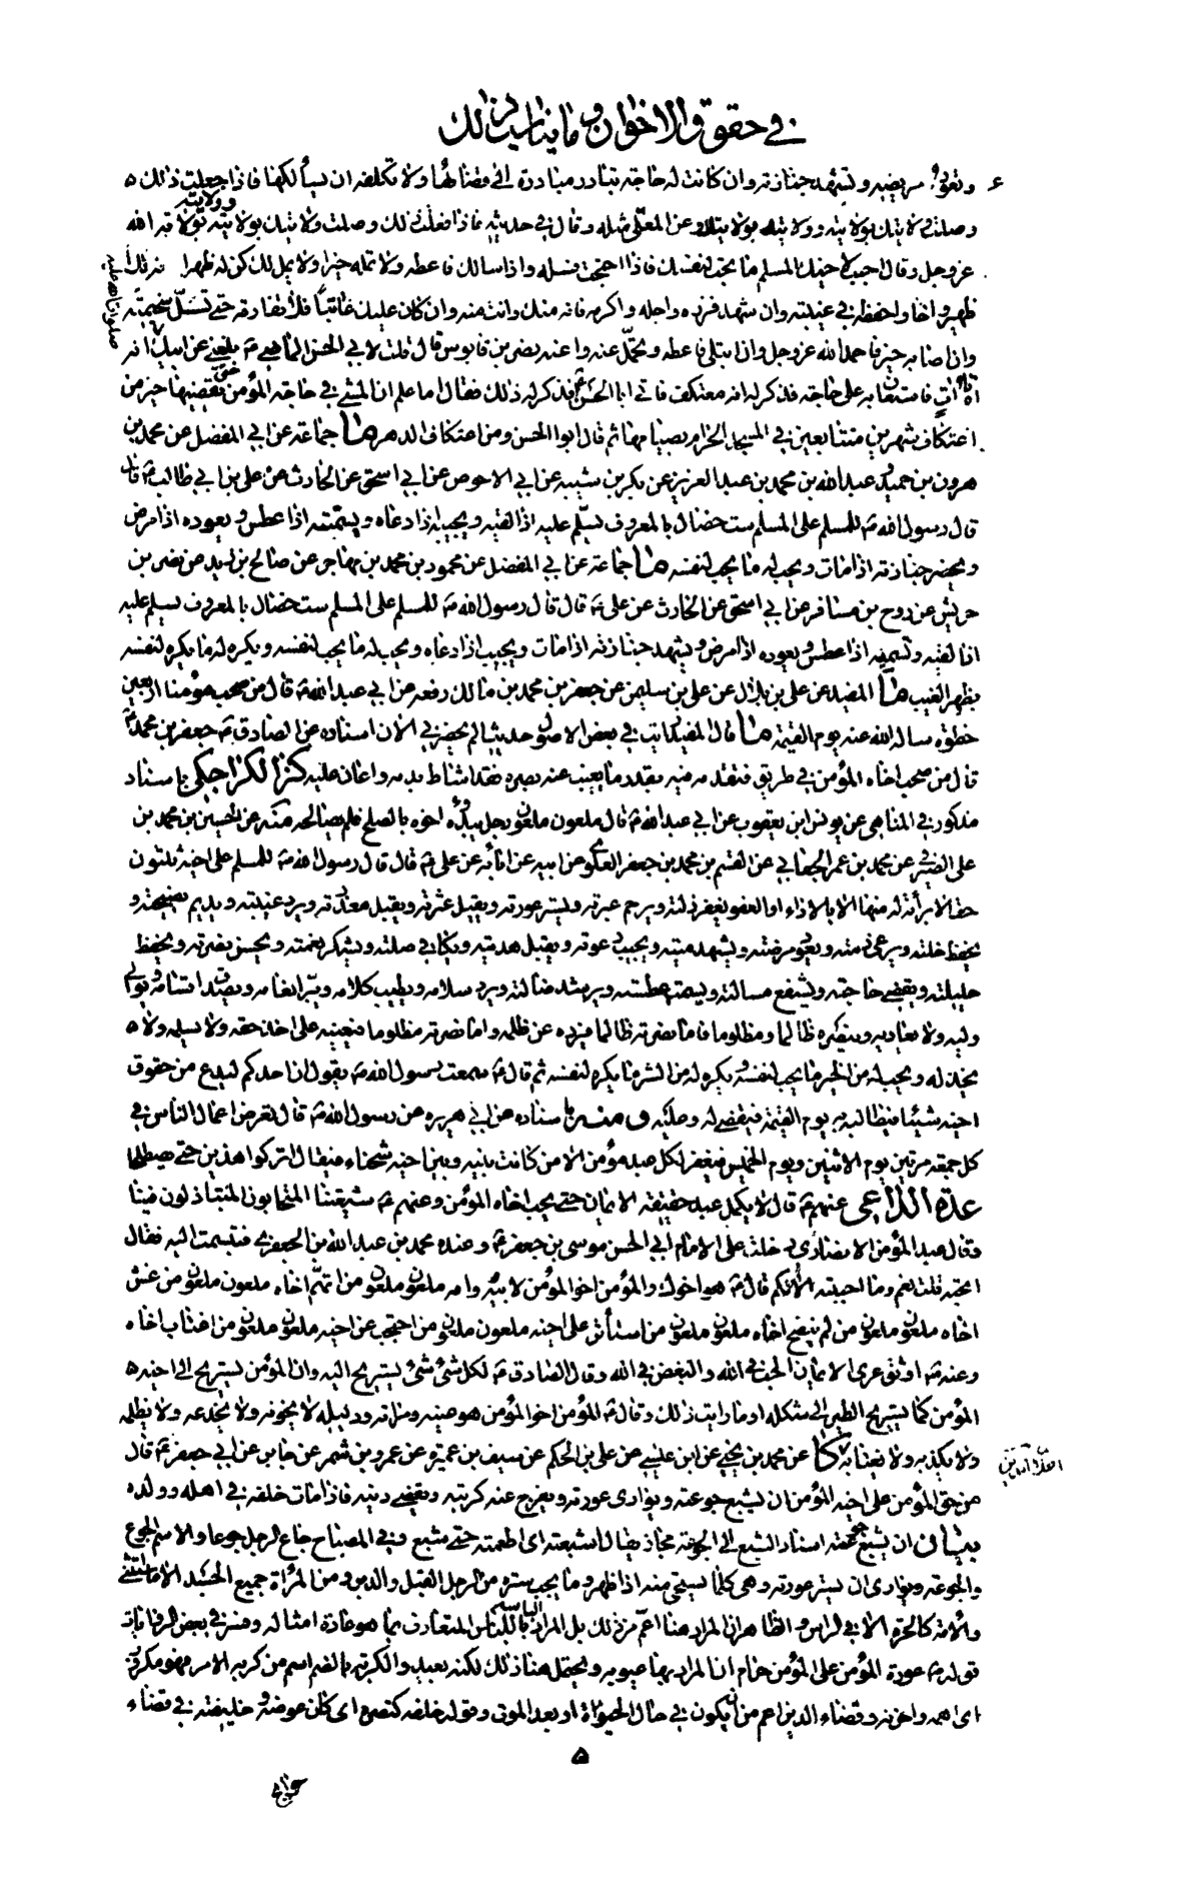 في حقوق الاخوان وما يناسب ذلك
وتعود مريضه وتشهد جنازته وان كانت له حاجة تبادر مبادرة الى قضائها ولا تكلفه ان يسألكها فاذا جعلت ذلك
وصلت ولايتك بولايته وولايته بولايتك وعن المعلى مثله وقال في حديثه فاذا فعلت ذلك وصلت ولايتك بولايته وولايته بولاية الله
عز وجل وقال احبب لاخيك المسلم ما تحب لنفسك فاذا احتجت فسله واذا سالك فاعطه ولا تمله خيرا ولا يمل لك كن له ظهرا فانه لك
ظهير واذا غاب احفظه في غيبته وان شهد فزره واجله واكرمه فانه منك وانت منه وان كان عليك عاتبا فلا تفارقه حتى تسل سخيمته
وان اصابه خير فاحمد الله عز وجل وان ابتلي فاعطه وتحمل عنه واعنه نصر بن قابوس قال قلت لابي الحسن الماضي ع بلغني عن ابيك انه
اتاه آت فاستعان به على حاجة فذكر له انه معتكف فاتى ابا الحسن ع فذكر له ذلك فقال اما علم ان المشي في حاجة المؤمن حتى يقضيها خير من
اعتكاف شهرين متتابعين في المسجد الحرام بصيامهما ثم قال ابو الحسن ومن اعتكاف الدهر ما جماعة عن ابي المفضل عن محمد بن
هرون بن حميد عبد الله بن محمد بن عبد العزيز عن بكر بن شيبه عن ابي الاحوص عن ابي اسحق عن الحارث عن علي بن ابي طالب ع قال
قال رسول الله ص للمسلم على المسلم ست خصال بالمعروف يسلم عليه اذا لقيه ويجيبه اذا دعاه ويسمته اذا عطس ويعوده اذا مرض
ويحضر جنازته اذا مات ويحب له ما يحب لنفسه ما جماعة عن ابي المفضل عن محمود بن محمد بن مهاجر عن صالح بن عن نصر بن
حريش عن روح بن مسافر عن ابي اسحق عن الحارث عن علي ع قال قال رسول الله ص للمسلم على المسلم ست خصال بالمعروف يسلم عليه
اذا لقيه وتسميته اذا عطس ويعوده اذا مرض ويشهد جنازته اذا مات ويجيبه اذا دعاه ويحب له ما يحب لنفسه ويكره له ما يكره لنفسه
بظهر الغيب ما المفيد عن علي بن بلال عن علي بن سليمن عن جعفر بن محمد بن مالك رفعه عن ابي عبد الله ع قال من صحب مؤمنا اربعين
خطوة ساله الله عنه يوم القيمة ما قال المفيد كاتب في بعض الاصول حديثا لم يحضرني الان اسناده عن الصادق ع جعفر بن محمد ع
قال من صحب اخاه المؤمن في طريق فتقدمه فيه بقدر ما يغيب عنه بصره فقد اشاط بدمه واعان عليه كنز الكراجكي باسناد
مذكور في المناهي عن يونس ابن يعقوب عن ابي عبد الله ع قال ملعون ملعون رجل يبدؤه اخوه بالصلح فلم يصالحه منه عن الحسين بن محمد بن
علي الصيرفي عن محمد بن عمر الجعابي عن القسم بن محمد بن جعفر العلوي عن ابيه عن ابائه عن علي ع قال قال رسول الله ص للمسلم على اخيه ثلثون
حقا لا براءة له منها الا بالاداء او العفو يغفر زلته ويرحم عبرته ويستر عورته ويقيل عثرته ويقبل معذرته ويرد غيبته ويديم نصيحته و
يحفظ خلته ويرعى ذمته ويعود مرضته ويشهد ميته ويجيب دعوته ويقبل هديته ويكافي صلته ويشكر نعمته ويحسن نصرته ويحفظ
حليلته ويقضي حاجته ويشفع مسالته ويسمت عطسته ويرشد ضالته ويرد سلامه ويطيب كلامه ويبر انعامه ويصدق اقسامه ويوالي
وليه ولا يعاديه وينصره ظالما ومظلوما فاما نصرته ظالما فيرده عن ظلمه واما نصرته مظلوما فيعينه على اخذ حقه ولا يسلمه ولا
يخذله ويحب له من الخير ما يحب لنفسه ويكره له من الشر ما يكره لنفسه ثم قال ع سمعت رسول الله ص يقول ان احدكم ليدع من حقوق
اخيه شيئا فيطالبه به يوم القيمة فيقضي له وعليه ومنه باسناده عن ابي هريره عن رسول الله ص قال تعرض اعمال الناس في
كل جمعة مرتين يوم الاثنين ويوم الخميس فيغفر لكل عبد مؤمن الا من كانت بينه وبين اخيه شحناء فيقال اتركوا هذين حتى يصطلحا
عدة الداعي عنهم ع قال لا يكمل عبد حقيقة الايمان حتى يحب اخاه المؤمن وعنهم ع شيعتنا المتحابون المتباذلون فينا
وقال عبد المؤمن الانصاري دخلت على الامام ابي الحسن موسى بن جعفر ع وعنده محمد بن عبد الله بن الجعفري فتبسمت اليه فقال
اتحبه قلت نعم وما احببته الا لكم قال ع هو اخوك والمؤمن اخو المؤمن لابيه وامه ملعون ملعون من اتهم اخاه ملعون ملعون من غش
اخاه ملعون ملعون من لم ينصح اخاه ملعون ملعون من استأثر على اخيه ملعون ملعون من احتجب عن اخيه ملعون ملعون من اغتاب اخاه
وعنه ع اوثق عرى الايمان الحب في الله والبغض في الله وقال الصادق ع لكل شئ شئ يستريح اليه وان المؤمن يستريح الى اخيه
المؤمن كما يستريح الطير الى شكله او ما رايت ذلك وقال ع المؤمن اخو المؤمن هو عينه ومرآته ودليله لا يخونه ولا يخدعه ولا يظلمه
ولا يكذبه ولا يغتابه كا عن محمد بن يحيى عن ابن عيسى عن علي بن الحكم عن سيف بن عميرة عن عمرو بن شمر عن جابر عن ابي جعفر ع قال
من حق المؤمن على اخيه المؤمن ان يشبع جوعته ويواري عورته ويفرج عنه كربته ويقضي دينه فاذا مات خلفه في اهله وولده
بيان ان يشبع جوعته اسناد الشبع الى الجوعة مجاز يقال اشبعته اى اطعمته حتى شبع وفي المصباح جاع الرجل جوعا والاسم الجوع
والجوعة ويوارى ان يستر عورته وهى كلما يستحيى منه اذا ظهر وما يجب ستره من الرجل القبل والدبر ومن المرأة جميع الجسد الا ما استثنى
والامة كالحرة الا في الراس والظاهر ان المراد هنا اعم من ذلك بل المراد الباسه باللباس المتعارف بما هو عادة امثاله وفسر في بعض الروايات
قوله ع عورة المؤمن على المؤمن حرام ان المراد بها عيوبه ويحتمل هنا ذلك لكنه بعيد والكربة بالضم اسم من كربه الامر فهو مكروب
اى اهمه واحزنه وقضاء الدين اعم من ان يكون في حال الحيوة او بعد الموت وقوله خلفه كنصره اى كان عوضه وخليفته في قضاء